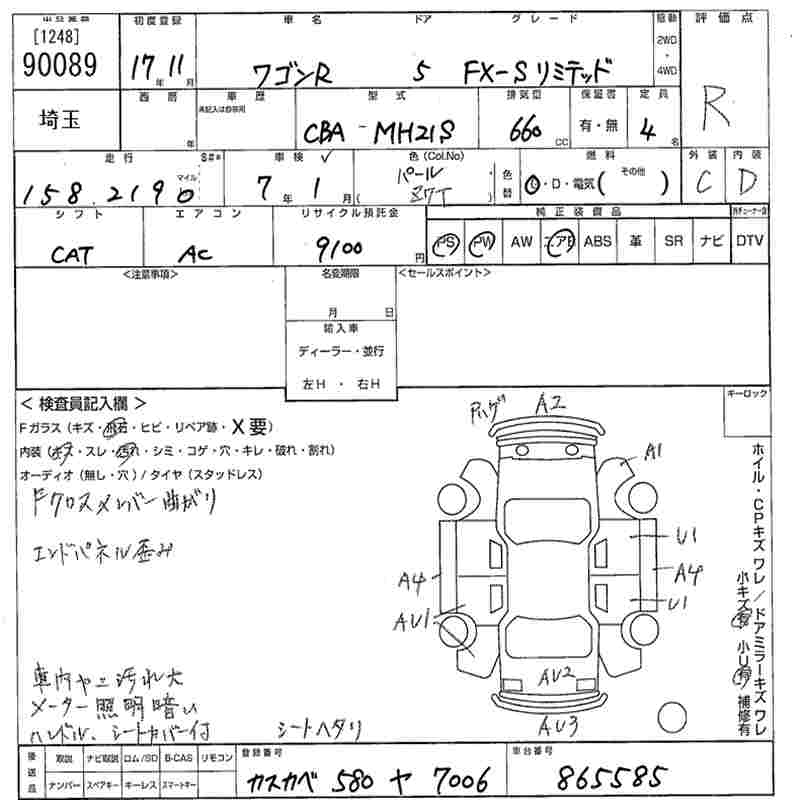 [1248]
90089
初度登録
17年11月
車名
ワゴンR
ドア
5
グレード
FX-Sリミテッド
駆動
2WD
・
4WD
評価点
R
埼玉
西暦
年
車歴
未記入は自家用
型式
CBA-MH21S
排気量
660cc
保証書
有・無
定員
4名
走行
158,2190
マイル
S#*
車検
7年1月
色(Col.No)
パール
Z7T
色替
燃料
G・D・電気(その他)
外装
C
内装
D
シフト
CAT
エアコン
AC
リサイクル預託金
9100円
純正装備品
PS PW AW エアB ABS 革 SR ナビ
DTV
<注意事項>
名変期限
月 日
輸入車
ディーラー・並行
左H・右H
<セールスポイント>
キーロック
<検査員記入欄>
Fガラス(キズ・飛石・ヒビ・リペア跡・X要)
内装(キズ・スレ・汚れ・シミ・コゲ・穴・キレ・破れ・割れ)
オーディオ(無し・穴)/タイヤ(スタッドレス)
Fクロスメンバー曲がり
エンドパネル歪み
車内ヤニ汚れ大
メーター照明暗い
ハンドル、シートカバー付
シートヘタリ
アハゲ
A2
A1
U1
A4
U1
A4
AU1
AU2
AU3
ホイル・CPキズワレ/ドアミラーキズワレ
小キズ有 小U有 補修有
後送品
取説 ナビ取説 ロム/SD B-CAS リモコン
ナンバー スペアキー キーレス スマートキー
登録番号
カスカベ 580 ヤ 7006
車台番号
865585